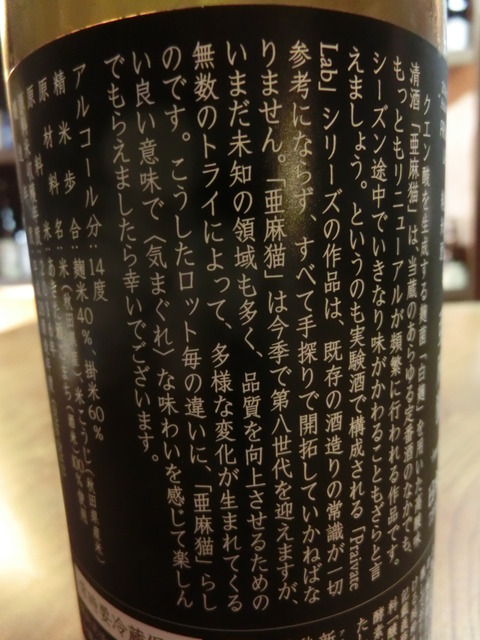 クエン酸を生成する麹菌「白麹」を用いた
清酒「亜麻猫」は、当蔵のあらゆる定番酒のなかでも、
もっともリニューアルが頻繁に行われる作品です。
シーズン途中でいきなり味がかわることもざらと言
えましょう。というのも実験酒で構成される「Praivate
Lab」シリーズの作品は、既存の酒造りの常識が一切
参考にならず、すべて手探りで開拓していかねばな
りません。「亜麻猫」は今季で第八世代を迎えますが、
いまだ未知の領域も多く、品質を向上させるための
無数のトライによって、多様な変化が生まれてくる
のです。こうしたロット毎の違いに、「亜麻猫」らし
い良い意味で〈気まぐれ〉な味わいを感じて楽しん
でもらえましたら幸いでございます。
アルコール分：14度
精米歩合：麹米40％、掛米60％
原材料名：米(秋田県産)、米こうじ(秋田県産米)